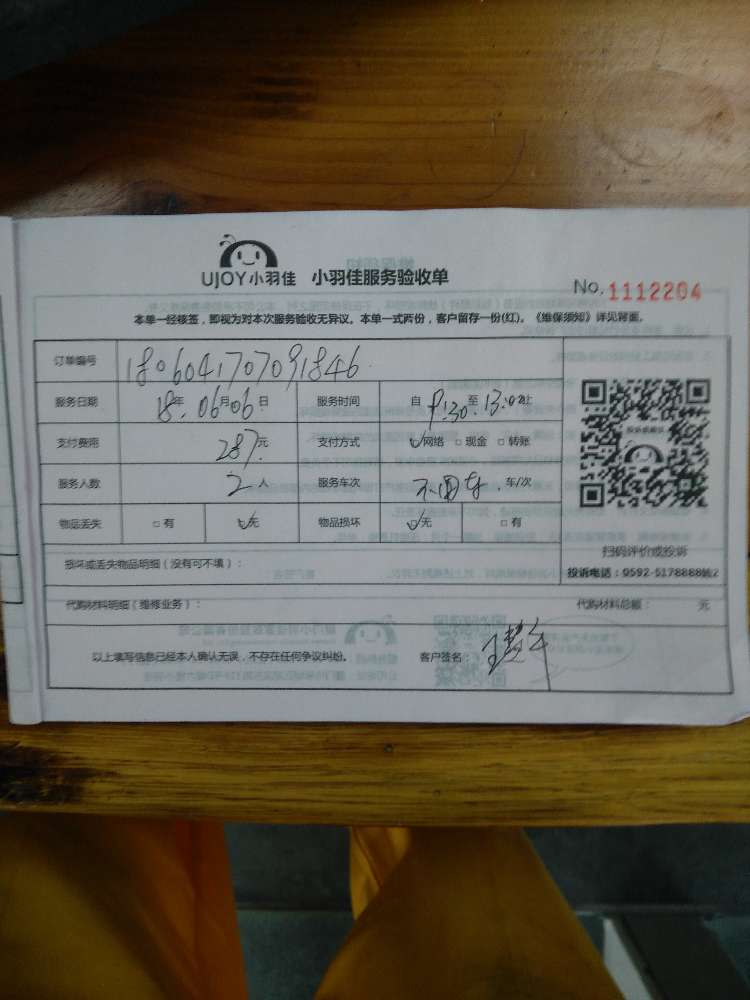 UJOY小羽佳 小羽佳服务验收单
No. 1112204
本单一经核签，即视为对本次服务验收无异议。本单一式两份，客户留存一份(红)。《维保须知》详见背面。
订单编号 180604170709 1846
服务日期 18年 06月06日 服务时间 自 9:30 至 13:00止
支付费用 287元 支付方式 ☑网络 □现金 □转账
服务人数 2人 服务车次 不用车 车/次
物品丢失 □有 ☑无 物品损坏 ☑无 □有
扫码评价或投诉
损坏或丢失物品明细（没有可不填）：
投诉电话：0592-5178888转2
代购材料明细（维修业务）： 代购材料总额： 元
以上填写信息已经本人确认无误，不存在任何争议纠纷。 客户签名：